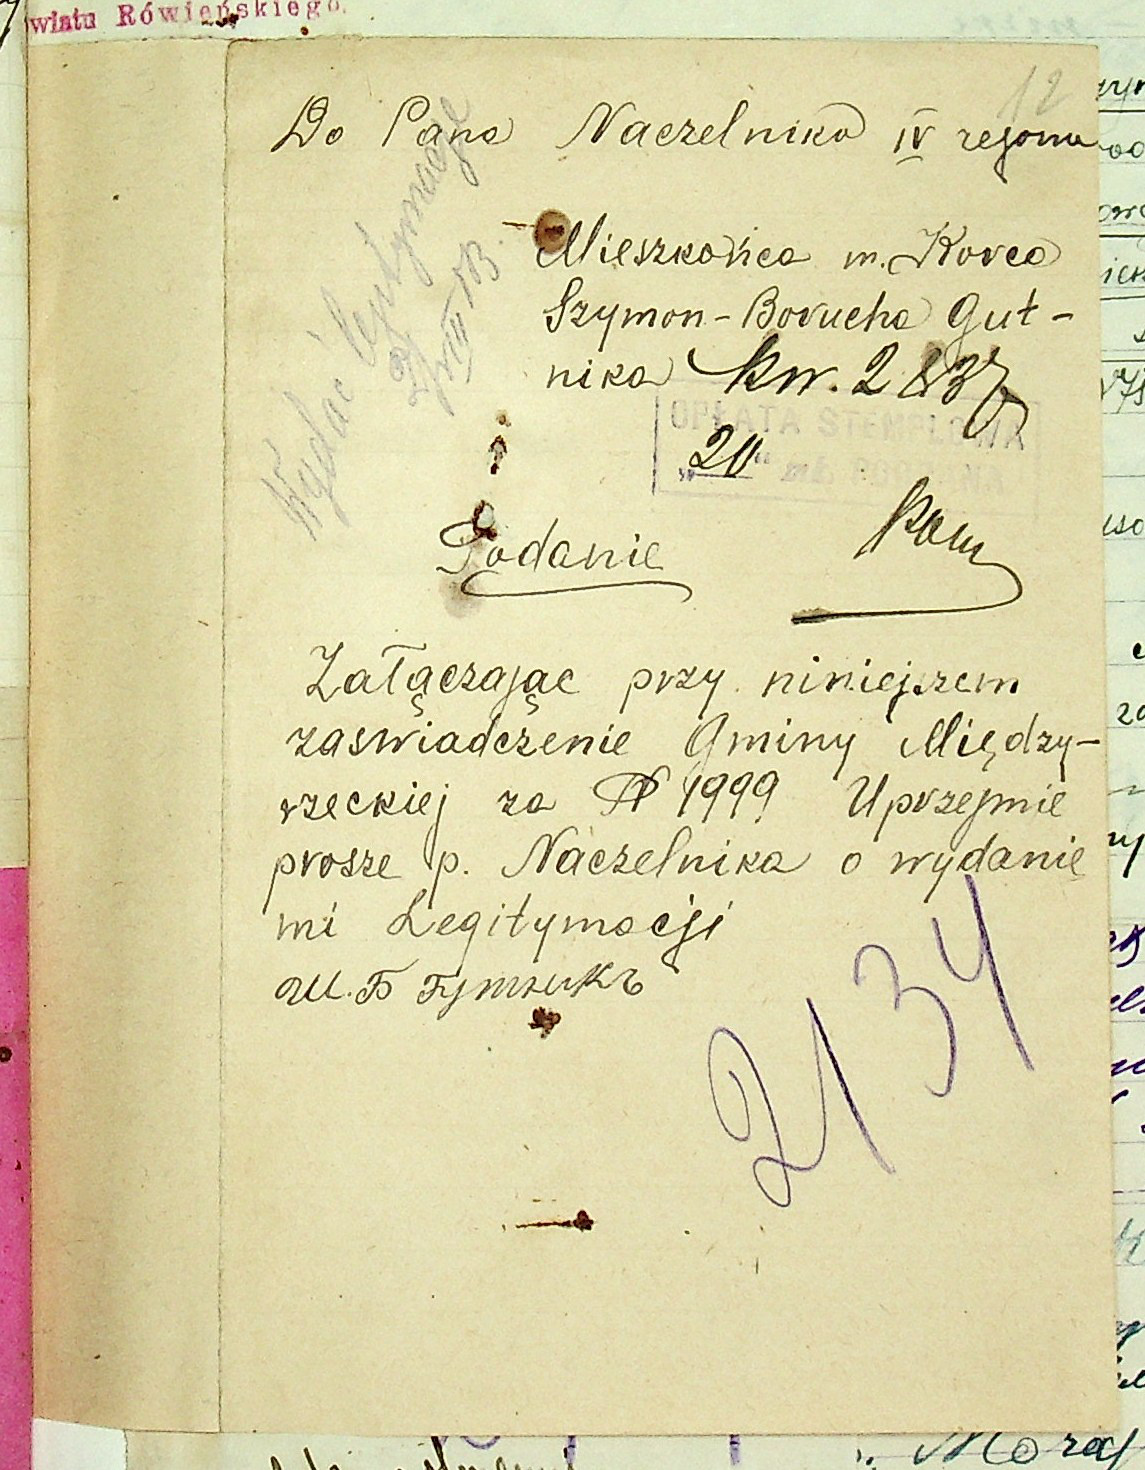 wiatu Rówieńskiego.
12
Do Pana Naczelnika IV rejonu
Mieszkańca m. Korca
Szymon-Borucha Gut-
nika kw. 2837
OPŁATA STEMPLOWA
"20" mk. POBRANA
Wydać legitymację
Podanie
Załączając przy niniejszem
zaswiadczenie Gminy Między-
rzeckiej za № 1999 Uprzejmie
prosze p. Naczelnika o wydanie
mi Legitymacji
Ш. Б Гутникъ
2134